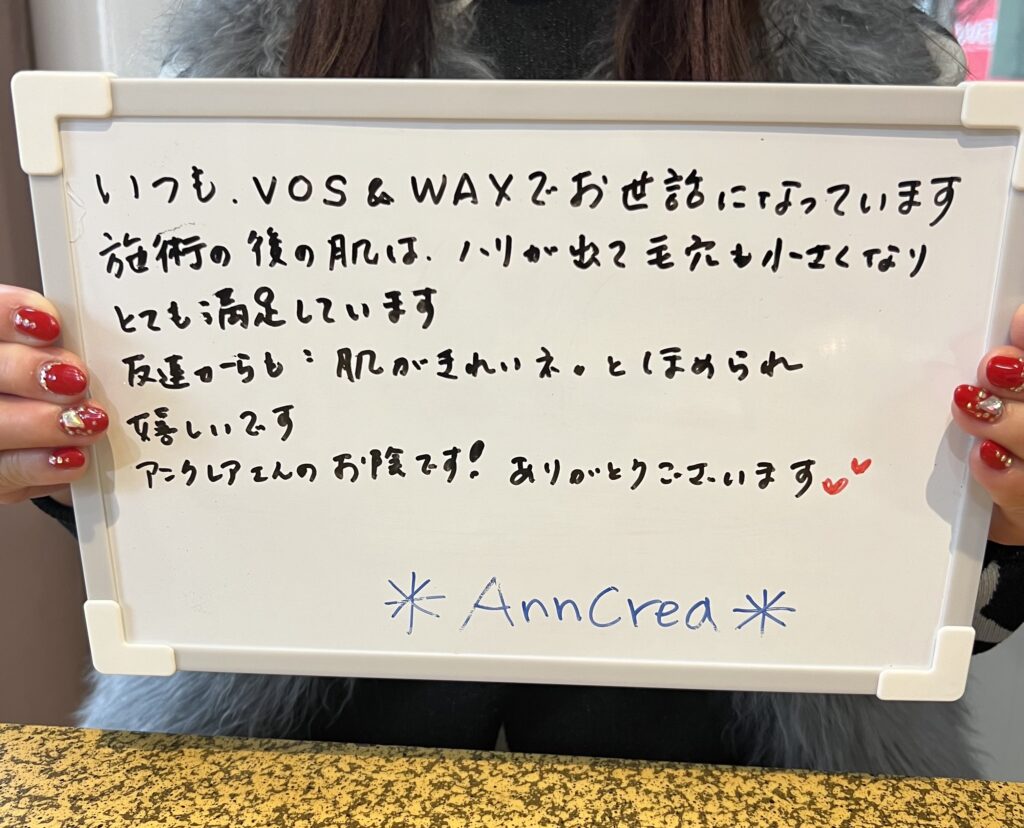 いつも、VOS&WAXでお世話になっています
施術の後の肌は、ハリが出て毛穴も小さくなり
とても満足しています
友達からも〝肌がきれいネ。とほめられ
嬉しいです
アンクレアさんのお陰です！ありがとうございます
*AnnCrea*